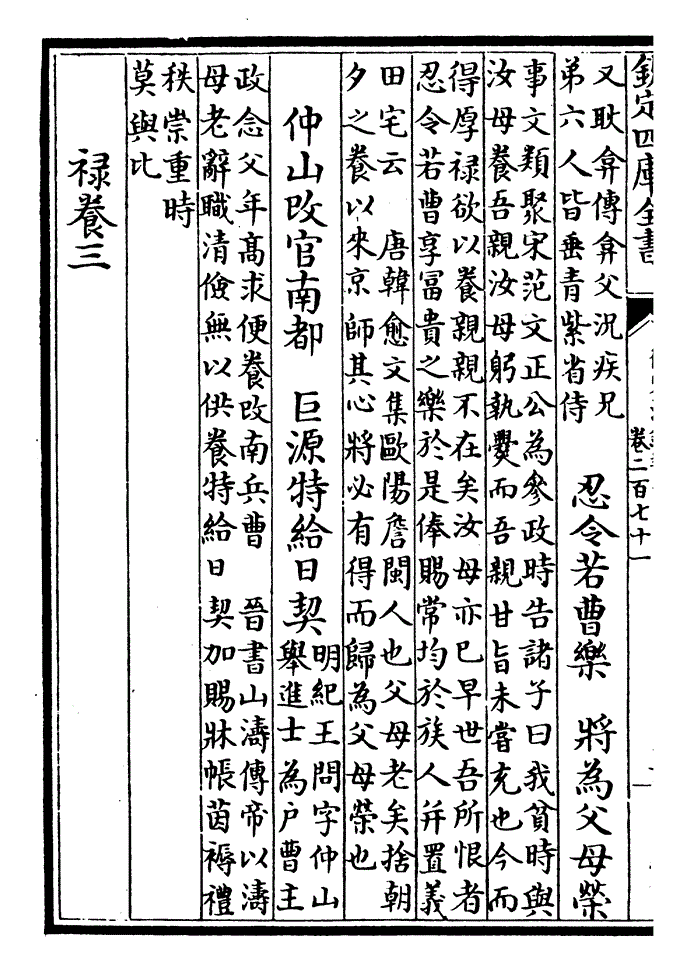 欽定四庫全書
卷二百七十一
又耿弇傳弇父況疾兄
弟六人皆垂青紫省侍
忍令若曹樂　將為父母榮
事文類聚宋范文正公為參政時告諸子曰我貧時與
汝母養吾親汝母躬執爨而吾親甘旨未嘗充也今而
得厚禄欲以養親親不在矣汝母亦已早世吾所恨者
忍令若曹享富貴之樂於是俸賜常均於族人并置義
田宅云　唐韓愈文集歐陽詹閩人也父母老矣捨朝
夕之養以來京師其心將必有得而歸為父母榮也
仲山改官南都　巨源特給日契
明紀王問字仲山
舉進士為户曹主
政念父年髙求便養改南兵曹　晉書山濤傳帝以濤
母老辭職清儉無以供養特給日契加賜牀帳茵褥禮
秩崇重時
莫與比
禄養三